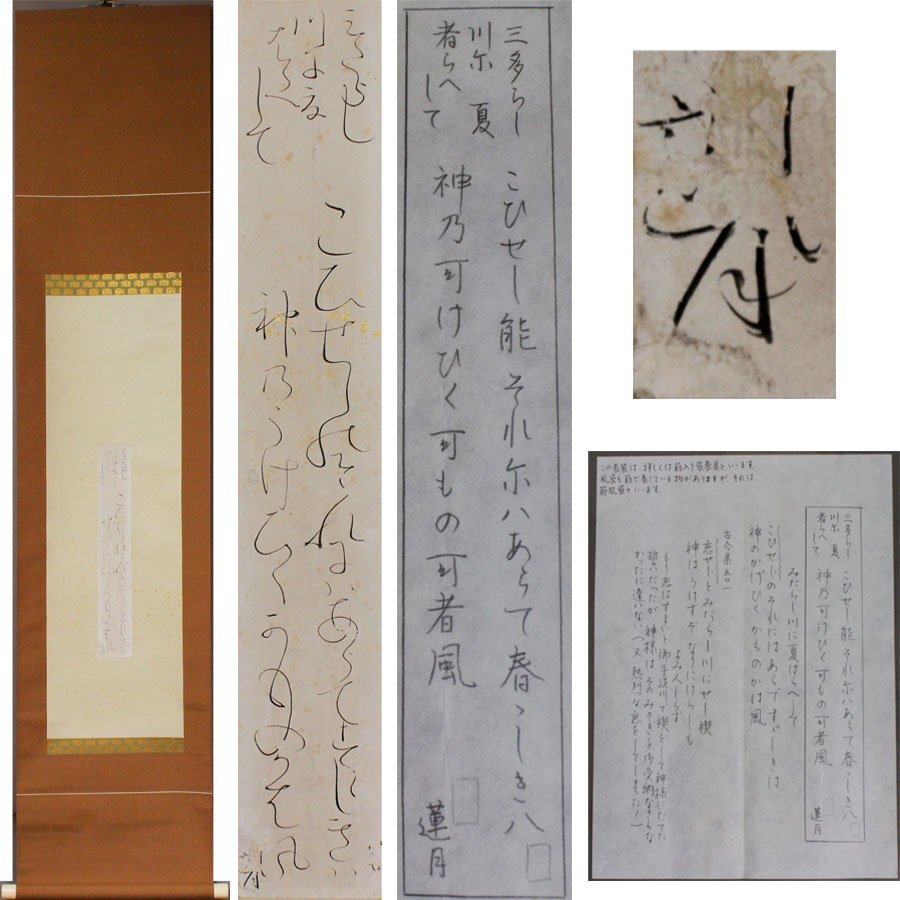 三多らし
川尓夏
者らへして
こひせし能それ尓ハあらて春ゝしき八
神乃可けひく可もの可者風
三多らし
川尓 夏
者らへして
こひせし能それ尓ハあらて春ゝしき八
神乃可けひく可もの可者風
蓮月
この表装は、詳しくは筋入り袋表具といいます。
風帯も筋で表している物がありますが、それは
筋風帯といいます。
三多らし
川尓 夏
者らへして
こひせし能それ尓ハあらて春ゝしき八
神乃可けひく可もの可者風
蓮月
みたらし川に夏はらへして
こひせしのそれにはあらですゞしきは
神のかげひくかものかは風
古今集五〇一
恋せしとみたらし川にせし禊
神はうけずぞなりにけらしも
よみ人しらず
もう恋はすまいと御手洗川で禊をして神様にたてた
誓いだったが、神様はそのみそぎを御受納なさらな
かったに違いない。(又熱烈な恋をしてしまった!)